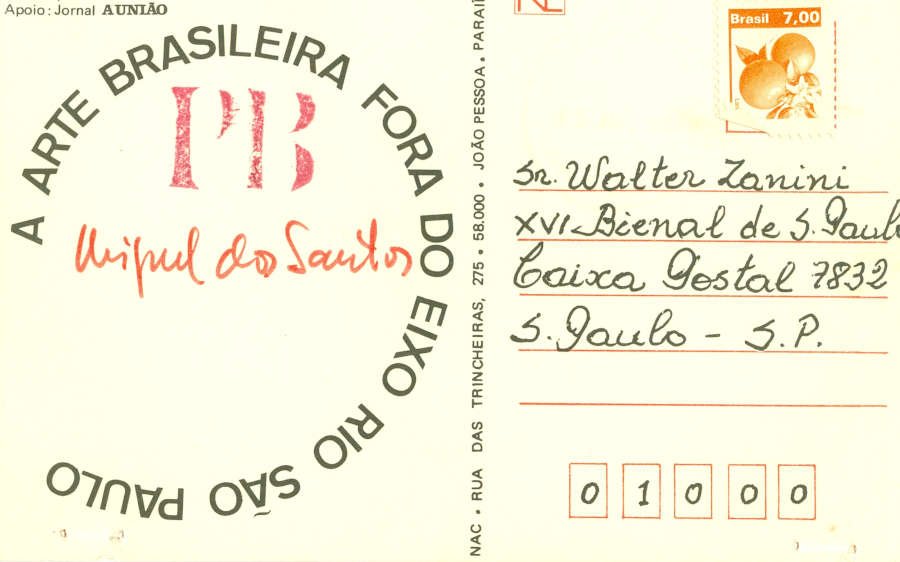 Apoio: Jornal A UNIÃO
A ARTE BRASILEIRA FORA DO EIXO RIO SÃO PAULO
PB
Miguel dos Santos
NAC • RUA DAS TRINCHEIRAS, 275 • 58.000 • JOÃO PESSOA • PARAÍ
Brasil 7,00
Sr. Walter Zanini
XVI-Bienal de S. Paulo
Caixa Postal 7832
S. Paulo - S.P.
0 1 0 0 0